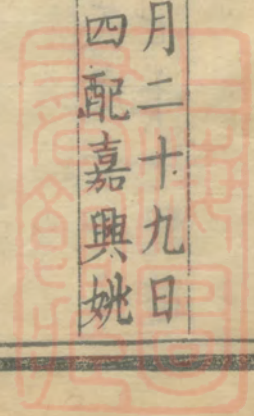 月二十九日
四配嘉興姚